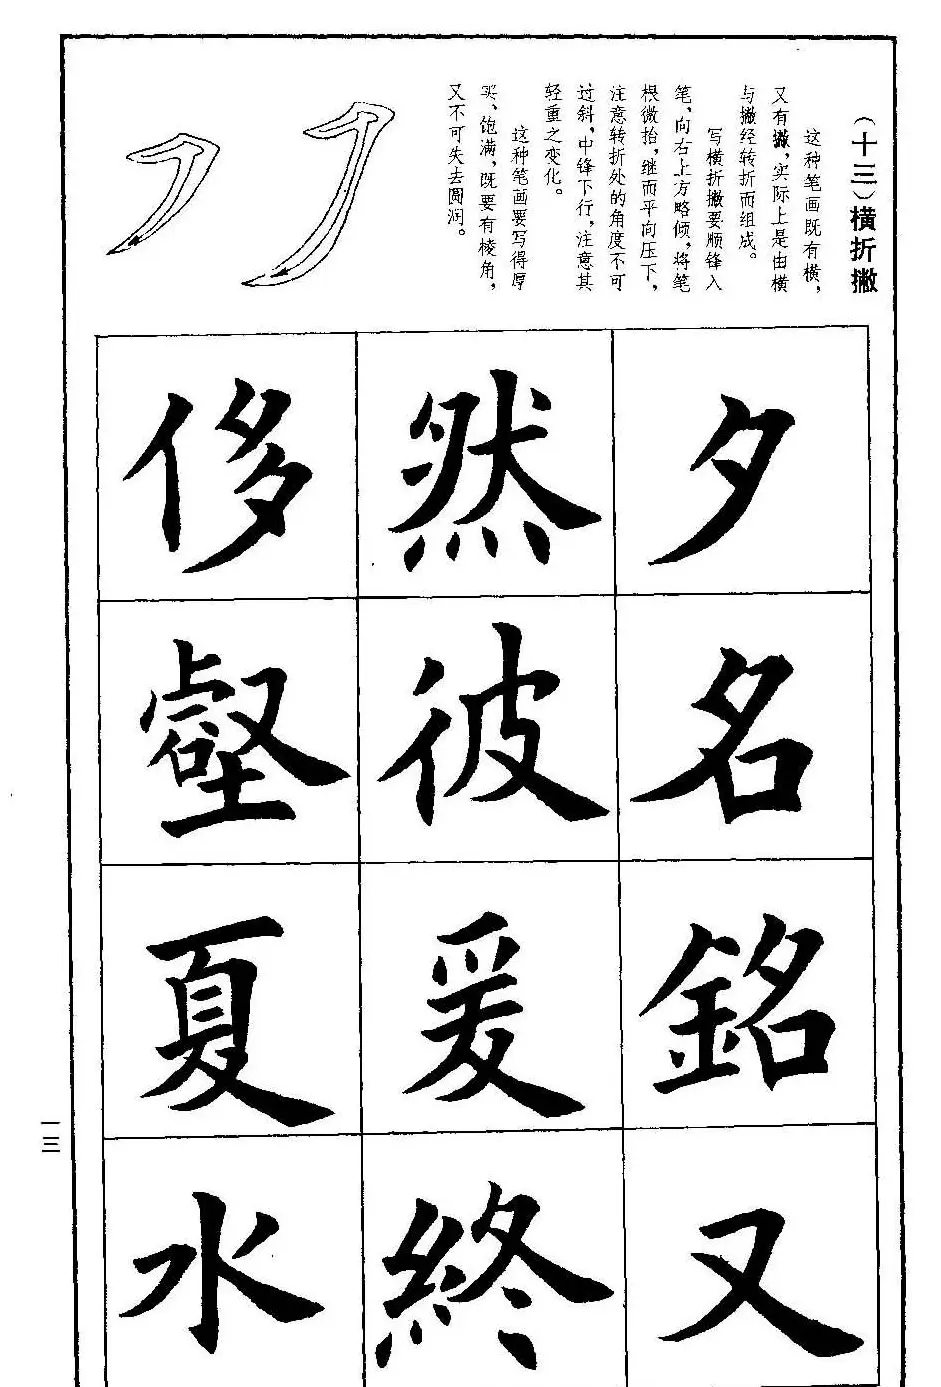 (十三)横折撇
这种笔画既有横，
又有撇，实际上是由横
与撇经转折而组成。
写横折撇要顺锋入
笔，向右上方略倾，将笔
根微抬，继而平向压下，
注意转折处的角度不可
过斜，中锋下行，注意其
轻重之变化。
这种笔画要写得厚
实、饱满，既要有棱角，
又不可失去圆润。
夕
名
銘
又
然
彼
爰
終
侈
壑
夏
水
一三